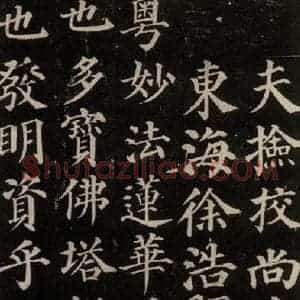 夫撿挍尚
東海徐浩
粵妙法蓮華
也多寶佛塔
也發明資乎
Shufaziliao.COM